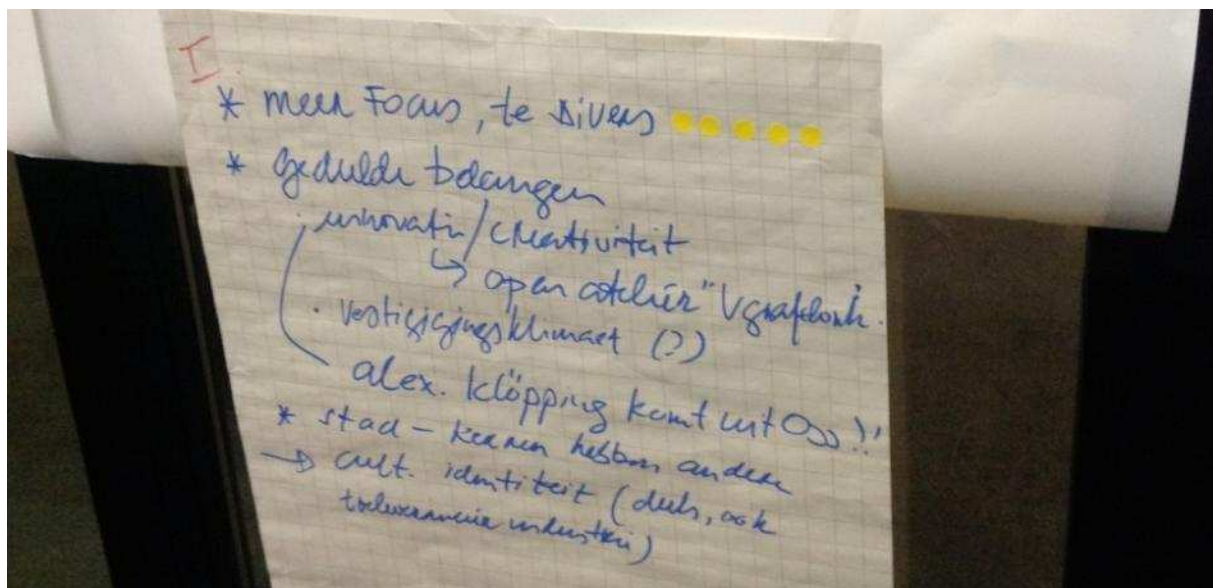 I.
* meer Focus, te Divers
* Gedeelde belangen
· innovatie/creativiteit
↳ open atelier"
· Vestigingsklimaat (?)
alex. klöpping komt uit Oss !!
* stad - kernen hebben andere
→ cult. identiteit (deels, ook
industrie)